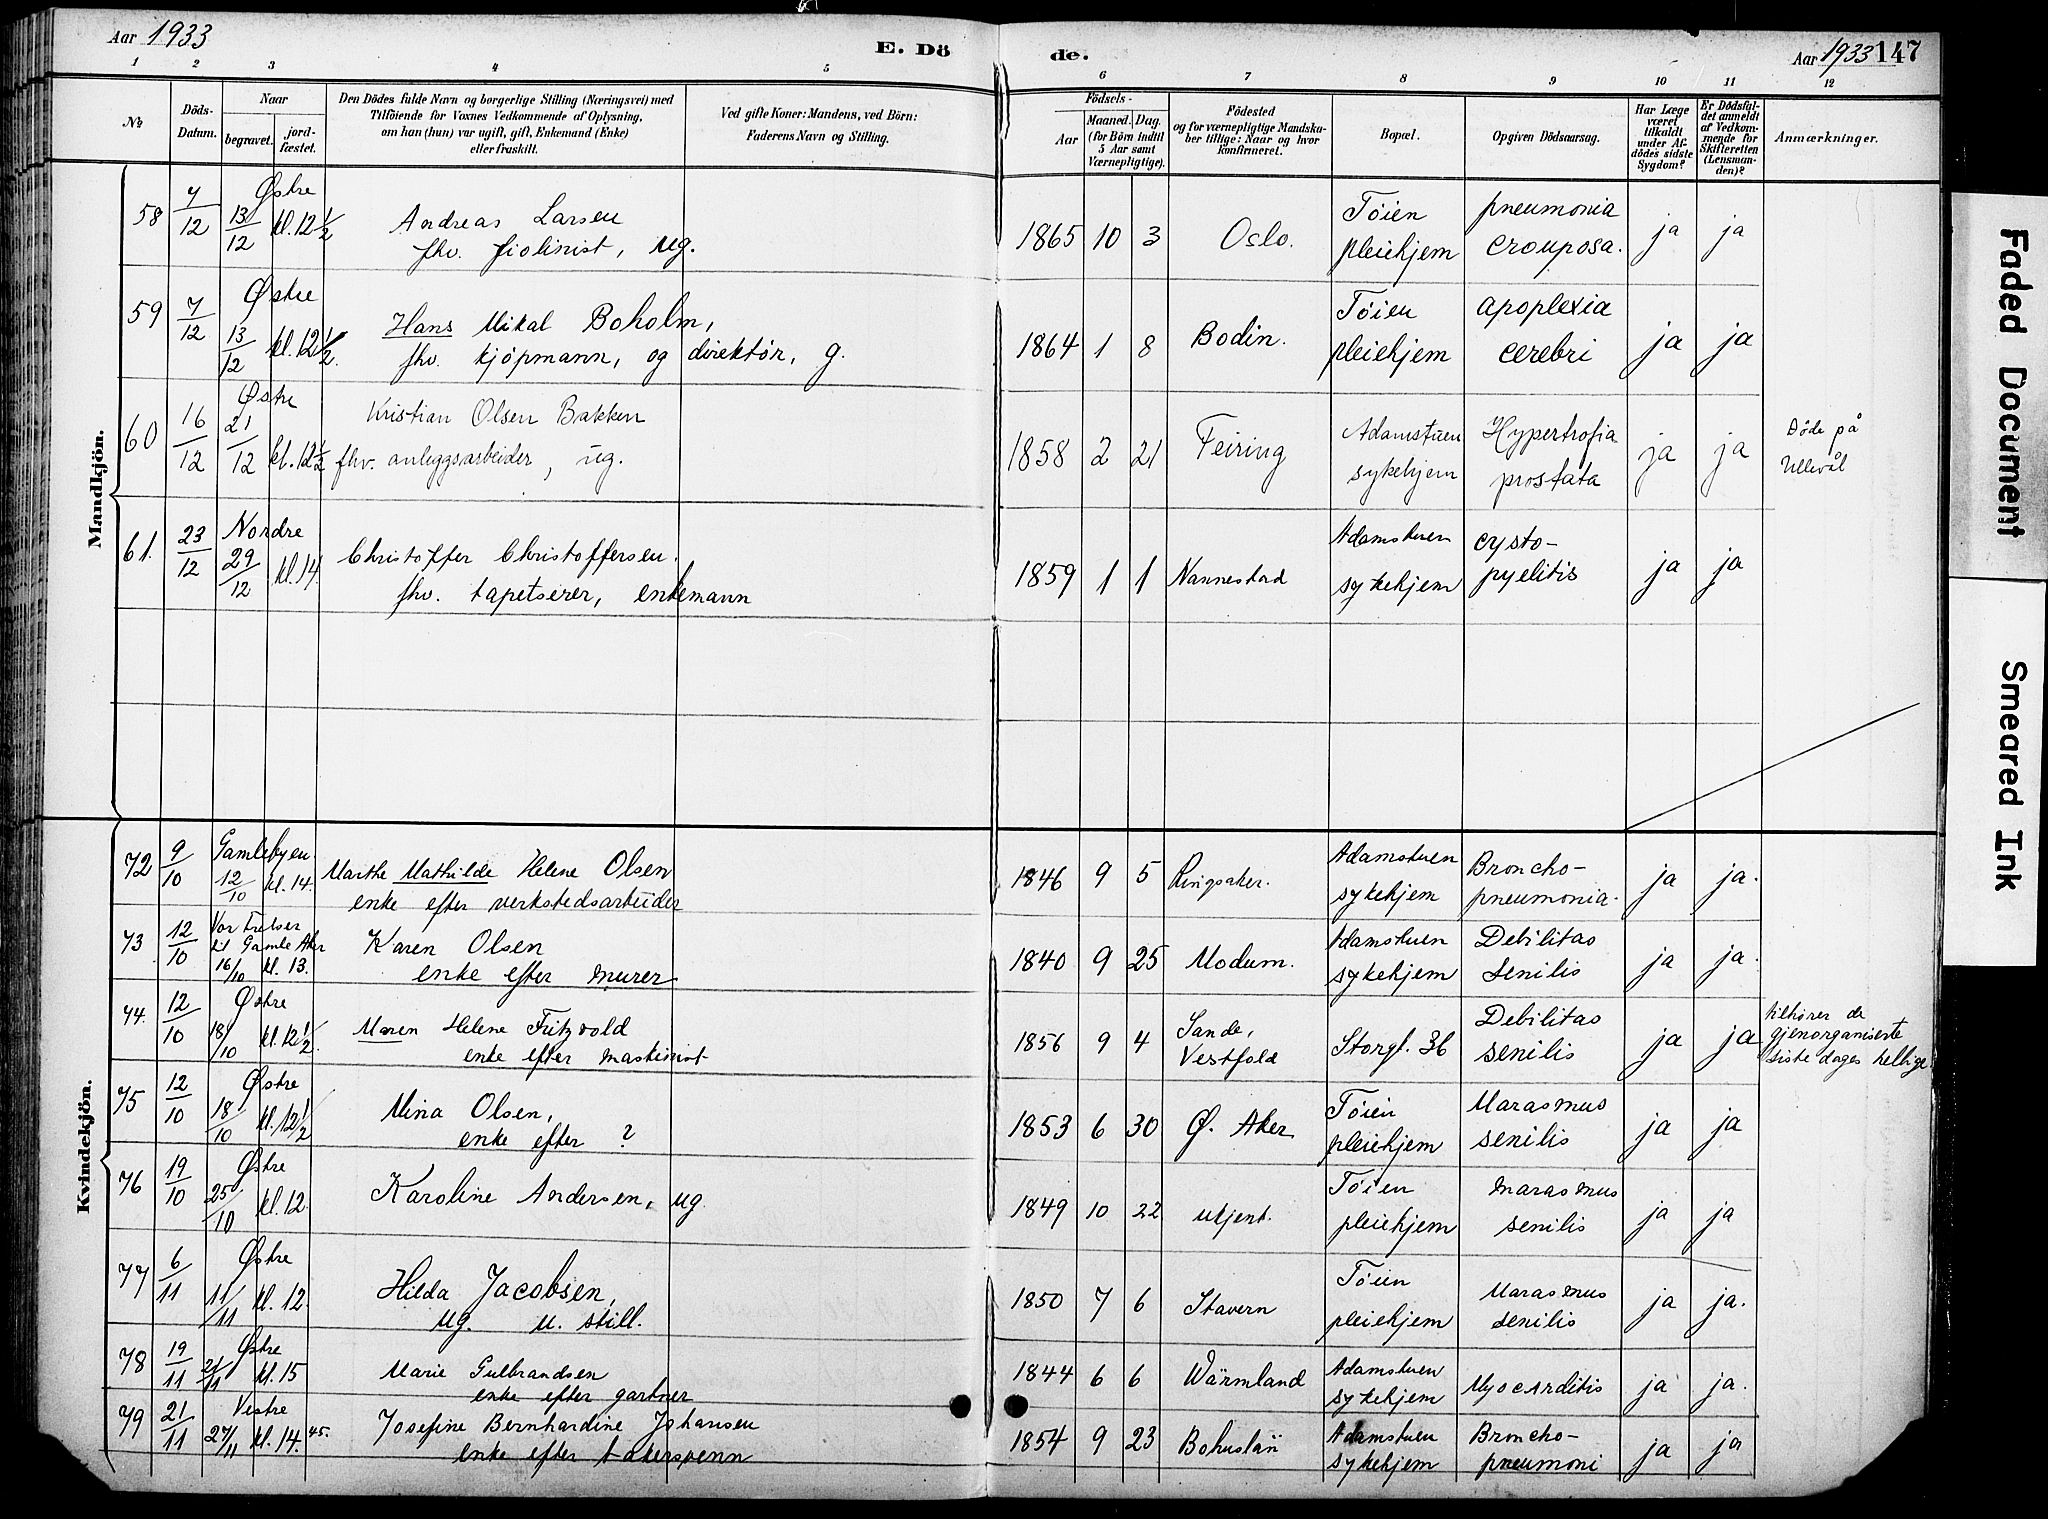 Aar 1933
E. Dö
de.
Aar 1933 147
1 2 3 4 5 6 7 8 9 10 11 12
№
Döds-
Datum.
Naar
begravet.
jord-
fæstet.
Den Dödes fulde Navn og borgerlige Stilling (Næringsvei) med
Tilföiende for Voxnes Vedkommende af Oplysning,
om han (hun) var ugift, gift, Enkemand (Enke)
eller fraskilt.
Ved gifte Koner: Mandens, ved Börn:
Faderens Navn og Stilling.
Födsels-
Aar
Maaned. Dag.
(for Börn indtil
5 Aar samt
Værnepligtige).
Födested
og for værnepligtige Mandska-
ber tillige: Naar og hvor
konfirmeret.
Bopæl.
Opgiven Dödsaarsag.
Har Læge
været
tilkaldt
under Af-
dödes sidste
Sygdom?
Er Dödsfal-
det anmeldt
af Vedkom-
mende for
Skifteretten
(Lensman-
den)?
Anmærkninger.
Mandkjön.
58 7/12 Østre 13/12 kl. 12 1/2
Andreas Larsen
fhv. fiolinist, ug.
1865 10 3 Oslo.
Tøien
pleiehjem
pneumonia
crouposa.
ja ja
59 7/12 Østre 13/12 kl. 12 1/2
Hans Mikal Boholm,
fhv. kjøpmann, og direktør, g.
1864 1 8 Bodin.
Tøien
pleiehjem
apoplexia
cerebri
ja ja
60 16/12 Østre 21/12 kl. 12 1/2
Kristian Olsen Bakken
fhv. anleggsarbeider, ug.
1858 2 21 Feiring
Adamstuen
sykehjem
Hypertrofia
prostata
ja ja
Døde på
Ullevål
61. 23/12 Nordre 29/12 kl. 14.
Christoffer Christoffersen.
fhv. tapetserer, enkemann
1859 1 1 Nannestad
Adamstuen
sykehjem
cysto-
pyelitis
ja ja
Kvindekjön.
72 9/10 Gamlebyen. 12/10 kl. 14.
Marthe Mathilde Helene Olsen
enke efter verkstedsarbeider
1846 9 5 Ringsaker.
Adamstuen
sykehjem
Broncho-
pneumonia.
ja ja.
73 12/10 Vor Frelser
til Gamle Aker
16/10 kl. 13.
Karen Olsen
enke efter murer
1840 9 25 Modum.
Adamstuen
sykehjem
Debilitas
senilis
ja ja.
74. 12/10 Østre 18/10 kl. 12 1/2.
Maren Helene Fritzvold
enke efter maskinist
1856 9 4
Sande,
Vestfold
Storgt. 36
Debilitas
senilis
ja ja
tilhører de
gjenorganiserte
siste dages hellige.
75 12/10 Østre 18/10 kl. 12 1/2
Mina Olsen,
enke efter ?
1853 6 30 Ø. Aker
Tøien
pleiehjem
Marasmus
senilis
ja ja
76 19/10 Østre 25/10 kl. 12.
Karoline Andersen, ug.
1849 10 22 ukjent.
Tøien
pleiehjem
marasmus
senilis
ja ja
77 6/11 Østre 11/11 kl. 12.
Hilda Jacobsen,
ug. u. still.
1850 7 6 Stavern
Tøien
pleiehjem
Marasmus
senilis
ja ja.
78 19/11 Østre 21/11 kl. 15
Marie Gulbrandsen
enke efter gartner
1844 6 6 Wärmland
Adamstuen
sykehjem
Myocarditis
ja ja.
79 21/11 Vestre 27/11 kl. 14.45.
Josefine Bernhardine Johansen
enke efter takersvenn
1854 9 23 Bohuslän
Adamstuen
sykehjem
Broncho-
pneumoni
ja ja
Faded Document
Smeared Ink